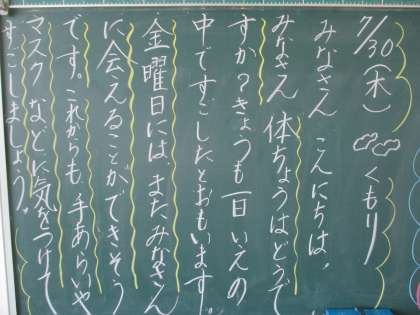 7/30(木) くもり
みなさん こんにちは。
みなさん 体ちょうはどうで
すか?きょうも一日いえの
中ですごしたとおもいます。
金曜日には、またみなさん
に会えることができそう
です。これからも、手あらいや
マスクなどに気をつけて
すごしましょう。